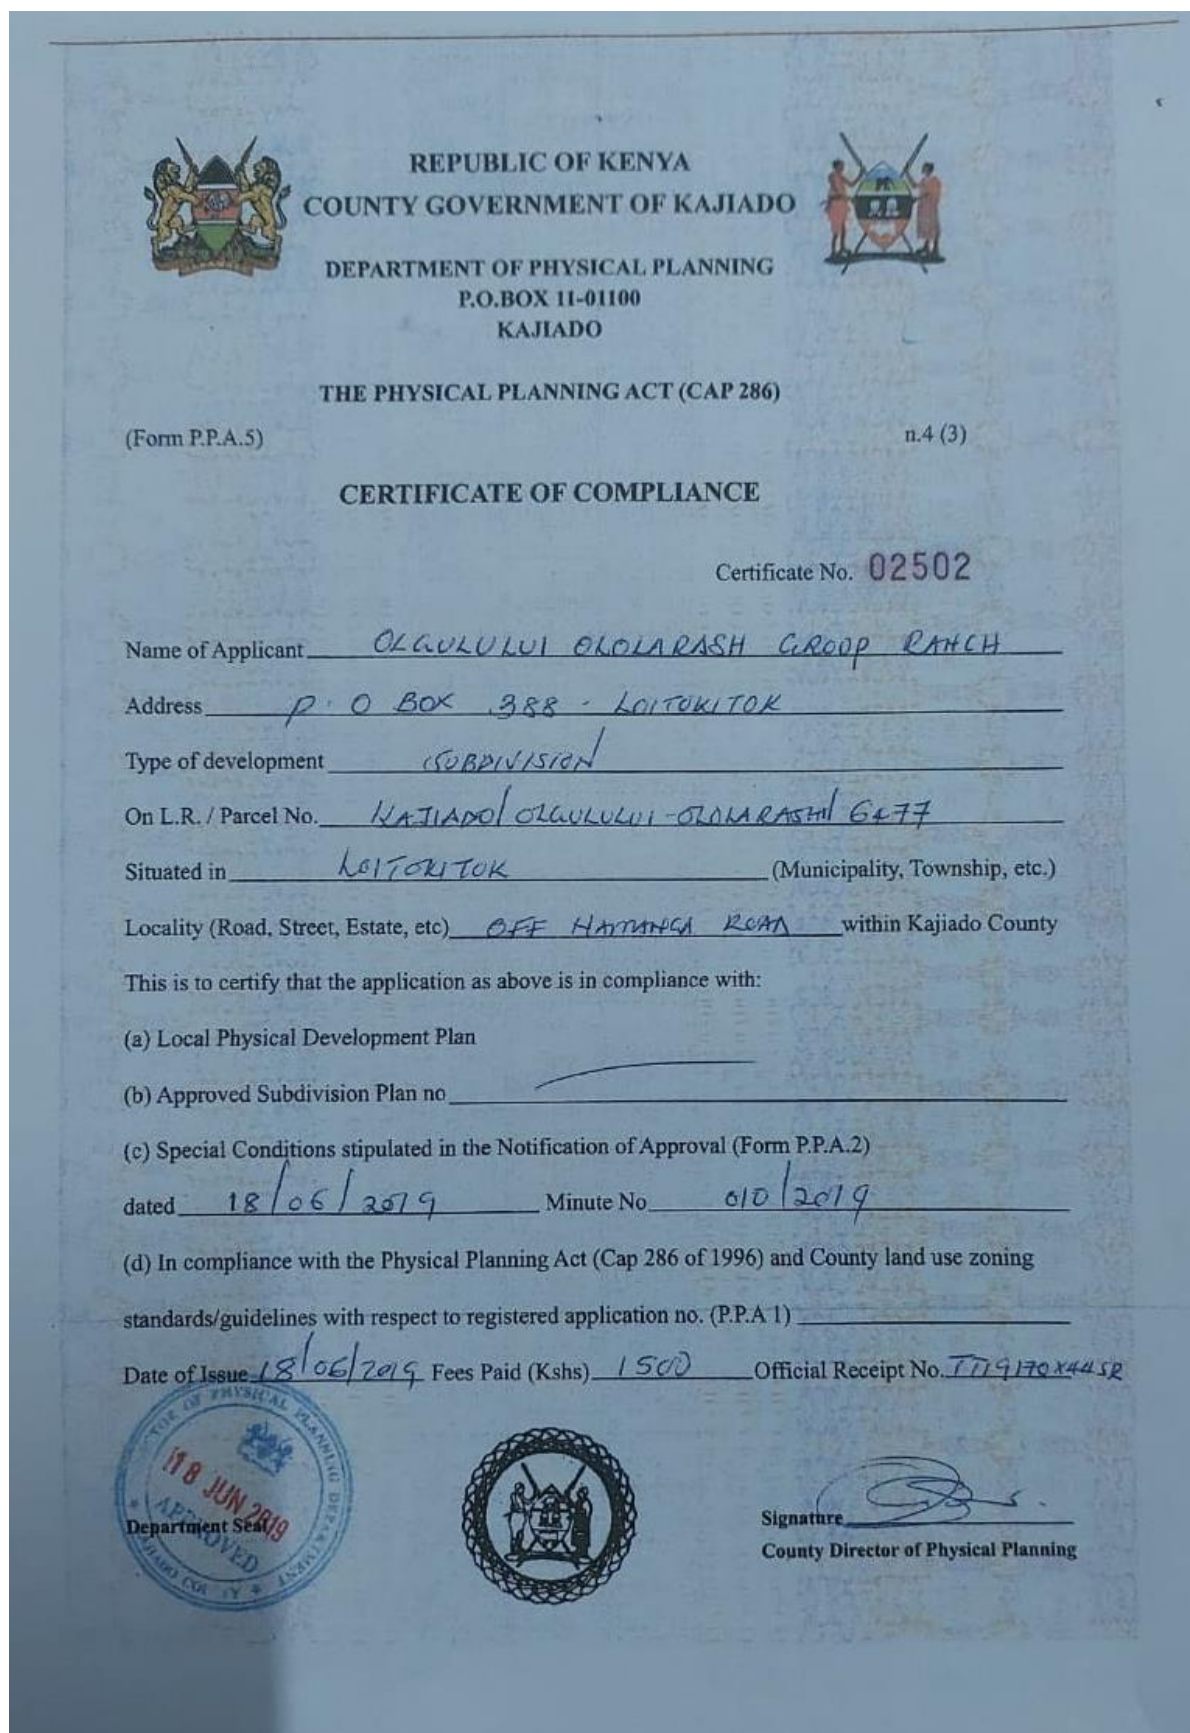 REPUBLIC OF KENYA
COUNTY GOVERNMENT OF KAJIADO
DEPARTMENT OF PHYSICAL PLANNING
P.O.BOX 11-01100
KAJIADO
THE PHYSICAL PLANNING ACT (CAP 286)
(Form P.P.A.5) n.4 (3)
CERTIFICATE OF COMPLIANCE
Certificate No. 02502
Name of Applicant OLGULULUI OLOLARASH GROOP RANCH
Address P.O BOX 388 - LOITOKITOK
Type of development SUBDIVISION
On L.R. / Parcel No. KAJIADO/OLGULULUI-OLOLARASHI/6477
Situated in LOITOKITOK (Municipality, Township, etc.)
Locality (Road, Street, Estate, etc) OFF ROAD within Kajiado County
This is to certify that the application as above is in compliance with:
(a) Local Physical Development Plan
(b) Approved Subdivision Plan no
(c) Special Conditions stipulated in the Notification of Approval (Form P.P.A.2)
dated 18/06/2019 Minute No 010/2019
(d) In compliance with the Physical Planning Act (Cap 286 of 1996) and County land use zoning
standards/guidelines with respect to registered application no. (P.P.A 1)
Date of Issue 18/06/2019 Fees Paid (Kshs) 1500 Official Receipt No.
OF PHYSICAL PLANNING DEPARTMENT
18 JUN 2019
APPROVED
Department Seal
Signature
County Director of Physical Planning